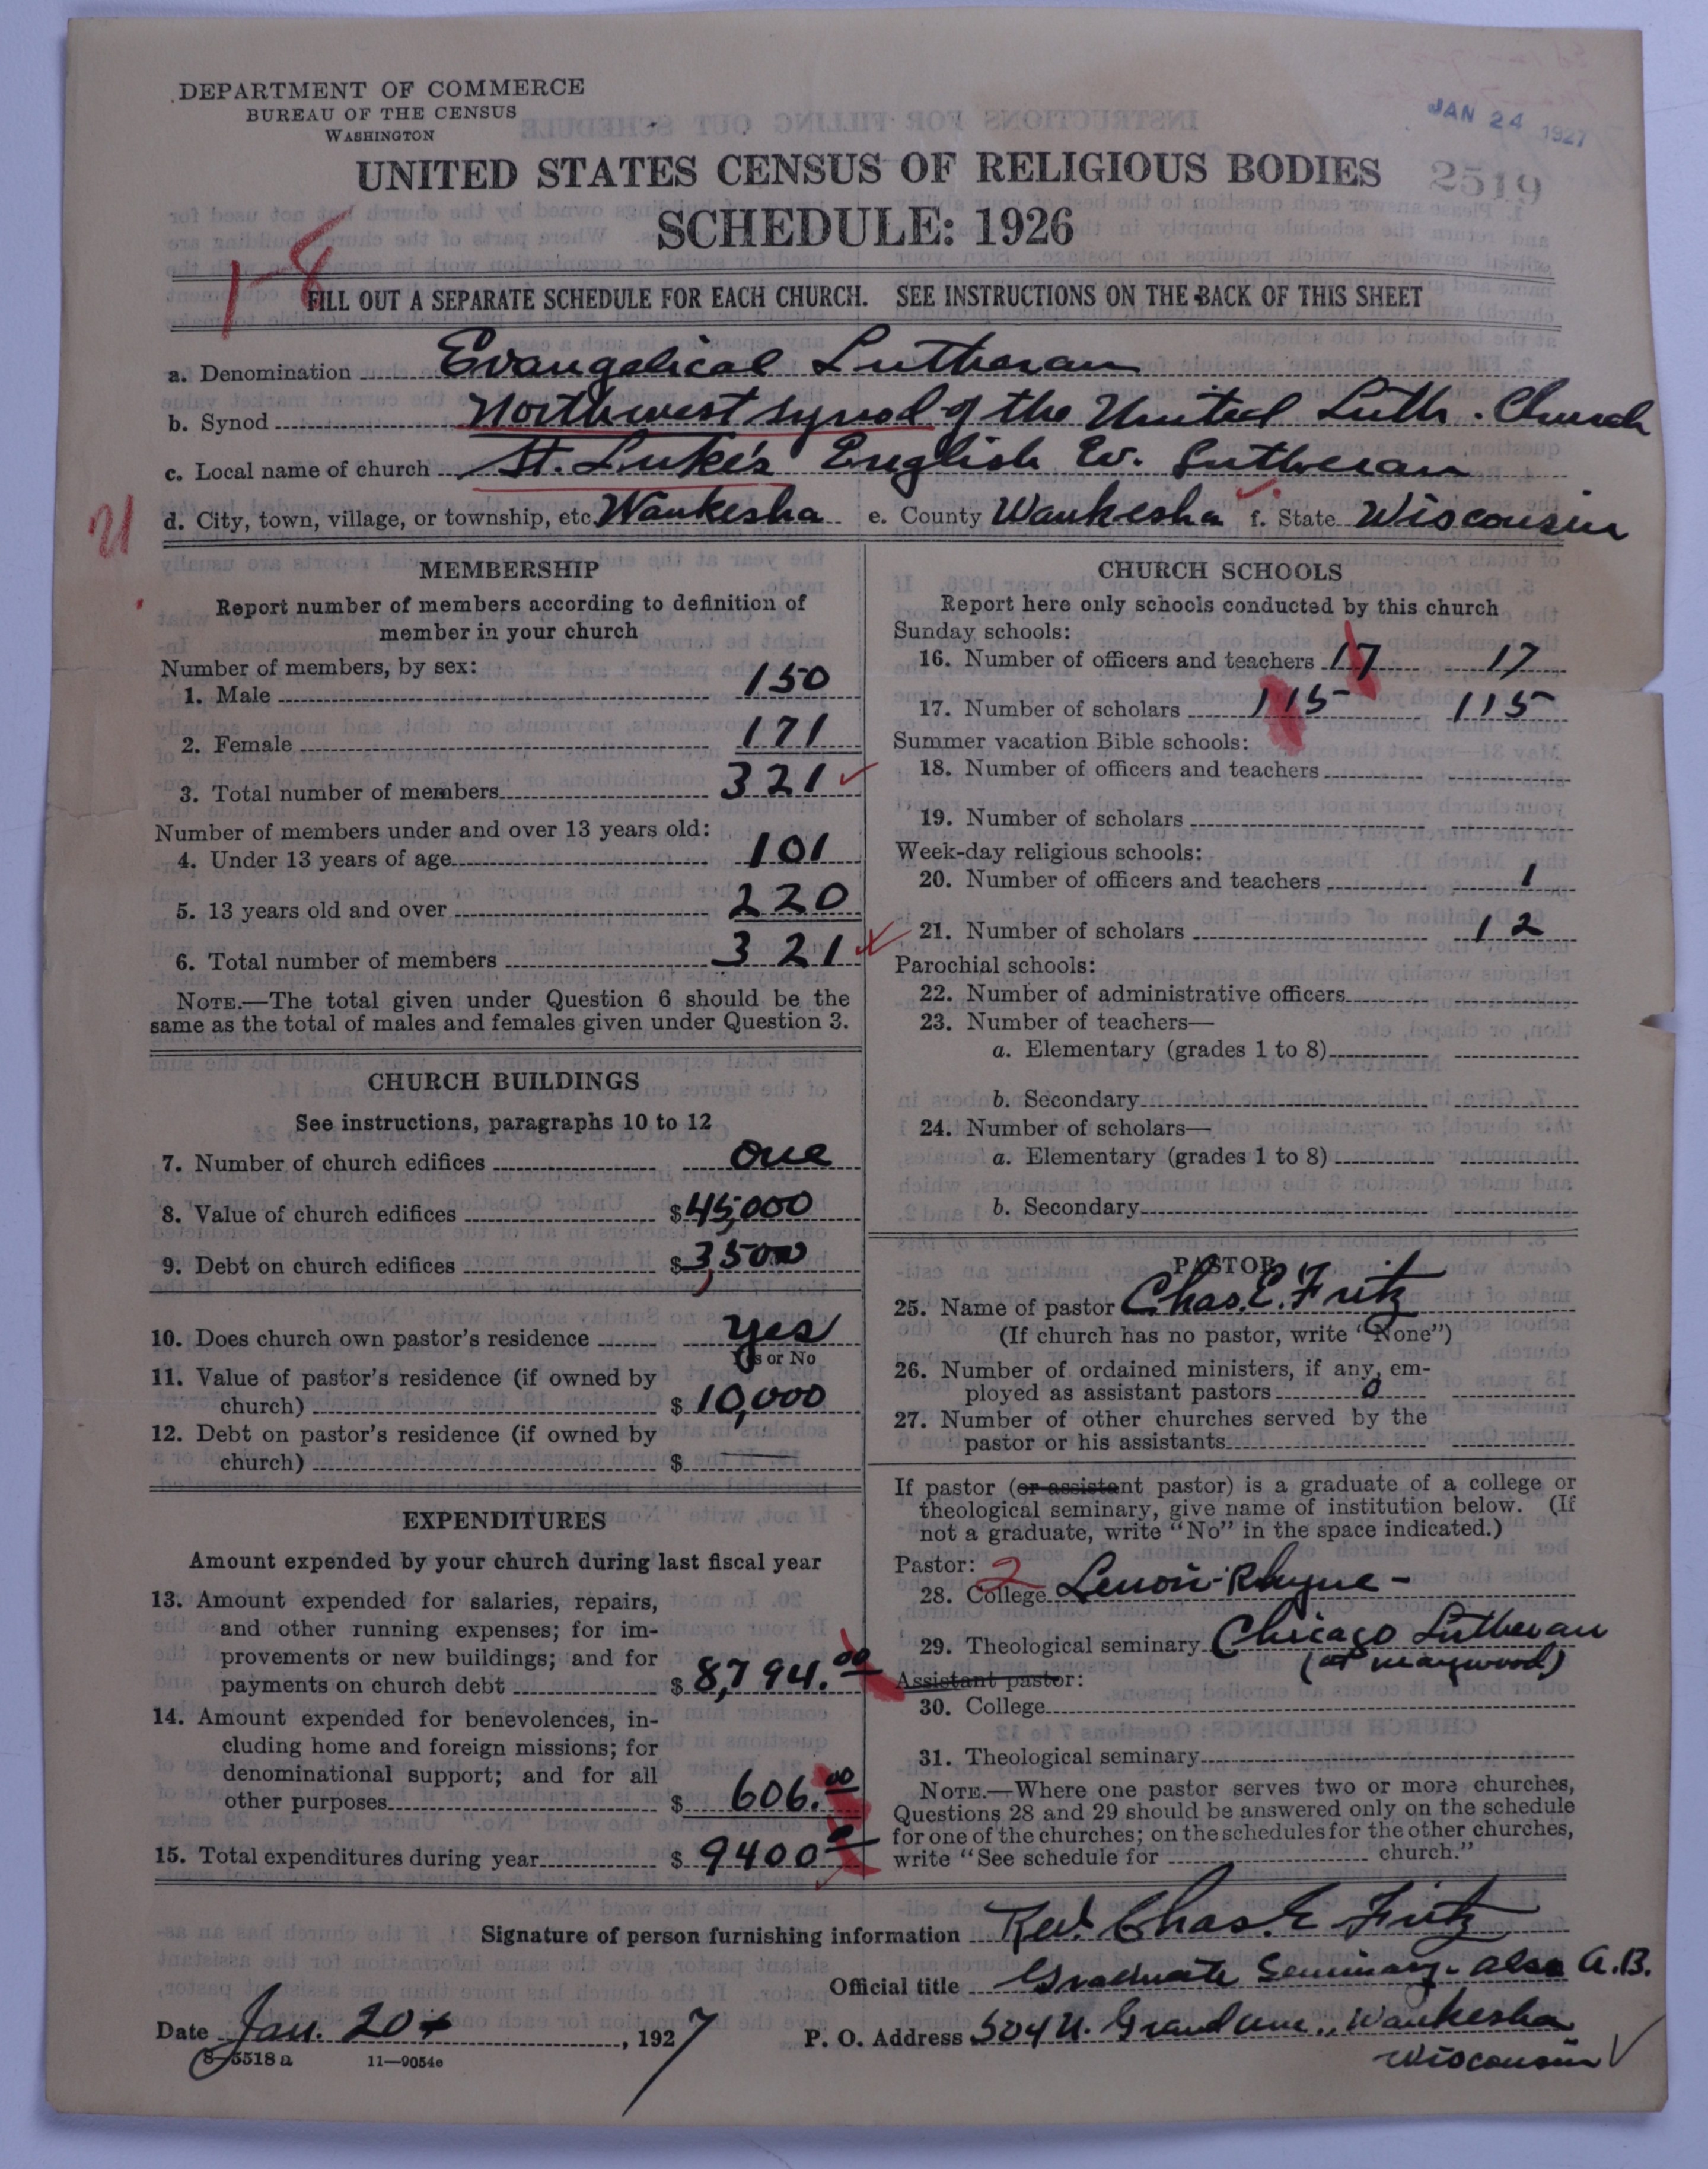 DEPARTMENT OF COMMERCE
BUREAU OF THE CENSUS
WASHINGTON
JAN 24 1927
2519
UNITED STATES CENSUS OF RELIGIOUS BODIES
SCHEDULE: 1926
1-8
FILL OUT A SEPARATE SCHEDULE FOR EACH CHURCH. SEE INSTRUCTIONS ON THE BACK OF THIS SHEET
a. Denomination Evangelical Lutheran
b. Synod Northwest Synod of the United Luth. Church
c. Local name of church St. Luke's English Ev. Lutheran
d. City, town, village, or township, etc. Waukesha e. County Waukesha f. State Wisconsin
MEMBERSHIP
Report number of members according to definition of
member in your church
Number of members, by sex:
1. Male 150
2. Female 171
3. Total number of members 321
Number of members under and over 13 years old:
4. Under 13 years of age 101
5. 13 years old and over 220
6. Total number of members 321
NOTE.—The total given under Question 6 should be the
same as the total of males and females given under Question 3.
CHURCH BUILDINGS
See instructions, paragraphs 10 to 12
7. Number of church edifices One
8. Value of church edifices $45,000
9. Debt on church edifices $3,500
10. Does church own pastor's residence Yes
Yes or No
11. Value of pastor's residence (if owned by
church) $10,000
12. Debt on pastor's residence (if owned by
church) $ —
EXPENDITURES
Amount expended by your church during last fiscal year
13. Amount expended for salaries, repairs,
and other running expenses; for im-
provements or new buildings; and for
payments on church debt $8,794.00
14. Amount expended for benevolences, in-
cluding home and foreign missions; for
denominational support; and for all
other purposes $606.00
15. Total expenditures during year $9400
CHURCH SCHOOLS
Report here only schools conducted by this church
Sunday schools:
16. Number of officers and teachers 17 17
17. Number of scholars 115 115
Summer vacation Bible schools:
18. Number of officers and teachers
19. Number of scholars
Week-day religious schools:
20. Number of officers and teachers 1
21. Number of scholars 12
Parochial schools:
22. Number of administrative officers
23. Number of teachers—
a. Elementary (grades 1 to 8)
b. Secondary
24. Number of scholars—
a. Elementary (grades 1 to 8)
b. Secondary
PASTOR
25. Name of pastor Chas. E. Fritz
(If church has no pastor, write "None")
26. Number of ordained ministers, if any, em-
ployed as assistant pastors 0
27. Number of other churches served by the
pastor or his assistants
If pastor (or assistant pastor) is a graduate of a college or
theological seminary, give name of institution below. (If
not a graduate, write "No" in the space indicated.)
Pastor: 2
28. College Lenoir-Rhyne-
29. Theological seminary Chicago Lutheran
(at Maywood)
Assistant pastor:
30. College
31. Theological seminary
NOTE.—Where one pastor serves two or more churches,
Questions 28 and 29 should be answered only on the schedule
for one of the churches; on the schedules for the other churches,
write "See schedule for church."
Signature of person furnishing information Rev. Chas. E Fritz
Official title Graduate Seminary- also A.B.
Date Jan. 20, 1927 P. O. Address 504 N. Grand Ave., Waukesha
Wisconsin
8-5518a 11—9054e